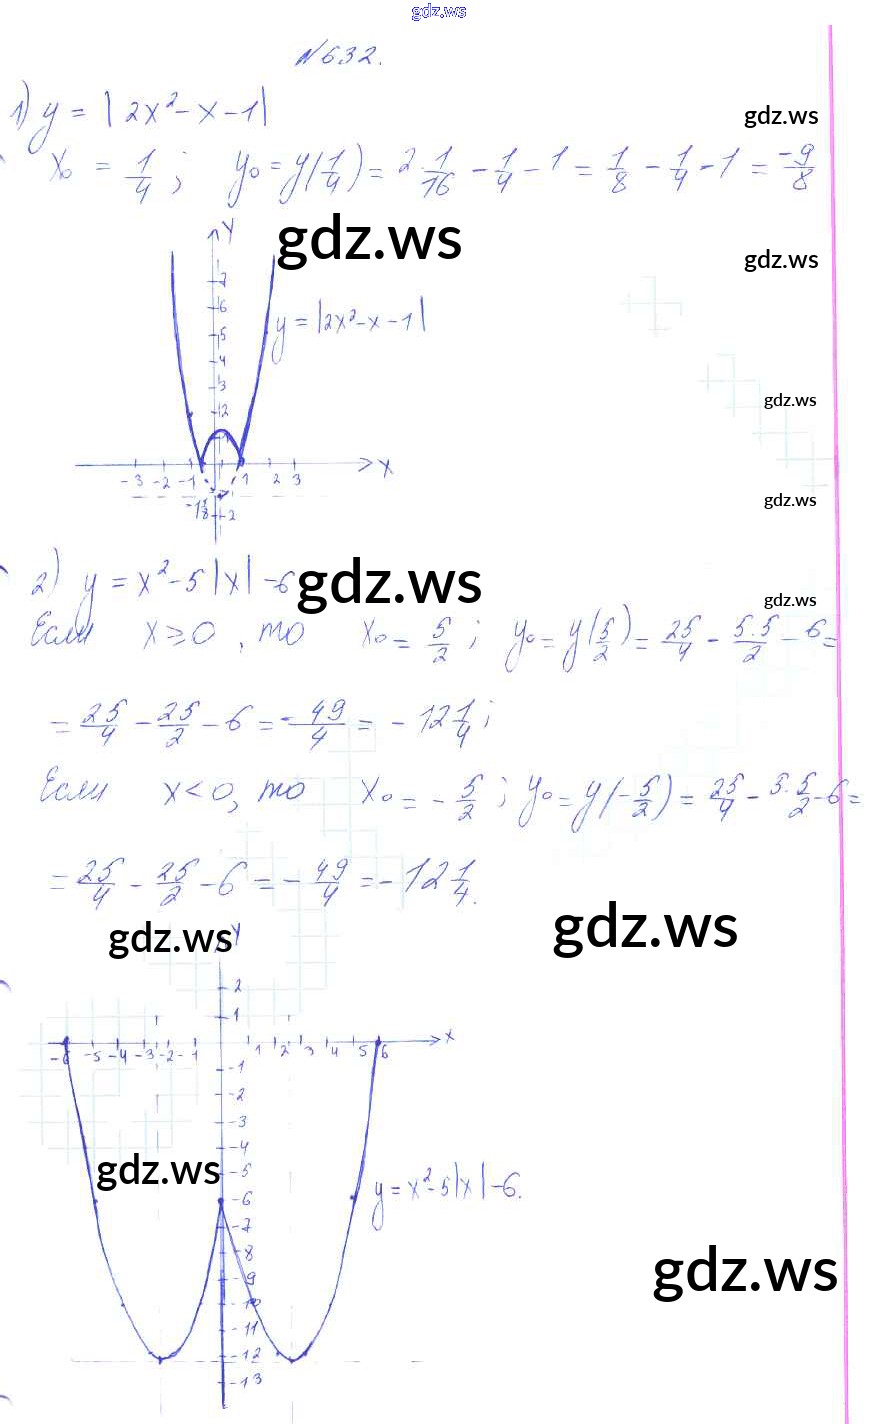 gdz.ws
№632.
1) y = |2x² - x - 1|
gdz.ws
x₀ = 1/4; y₀ = y(1/4) = 2·1/16 - 1/4 - 1 = 1/8 - 1/4 - 1 = -9/8
Y
gdz.ws
gdz.ws
7
6
y = |2x² - x - 1|
5
4
3
gdz.ws
2
1
-3 -2 -1 1 2 3 X
-1 1/8
-2
gdz.ws
2) y = x² - 5|x| - 6
gdz.ws
gdz.ws
Если x ≥ 0, то x₀ = 5/2; y₀ = y(5/2) = 25/4 - 5·5/2 - 6 =
= 25/4 - 25/2 - 6 = -49/4 = -12 1/4;
Если x < 0, то x₀ = -5/2; y₀ = y(-5/2) = 25/4 - 5·5/2 - 6 =
= 25/4 - 25/2 - 6 = -49/4 = -12 1/4.
gdz.ws
gdz.ws
Y
2
1
X
-6 -5 -4 -3 -2 -1 1 2 3 4 5 6
-1
-2
-3
-4
gdz.ws
-5
y = x² - 5|x| - 6.
-6
-7
-8
gdz.ws
-9
-10
-11
-12
-13